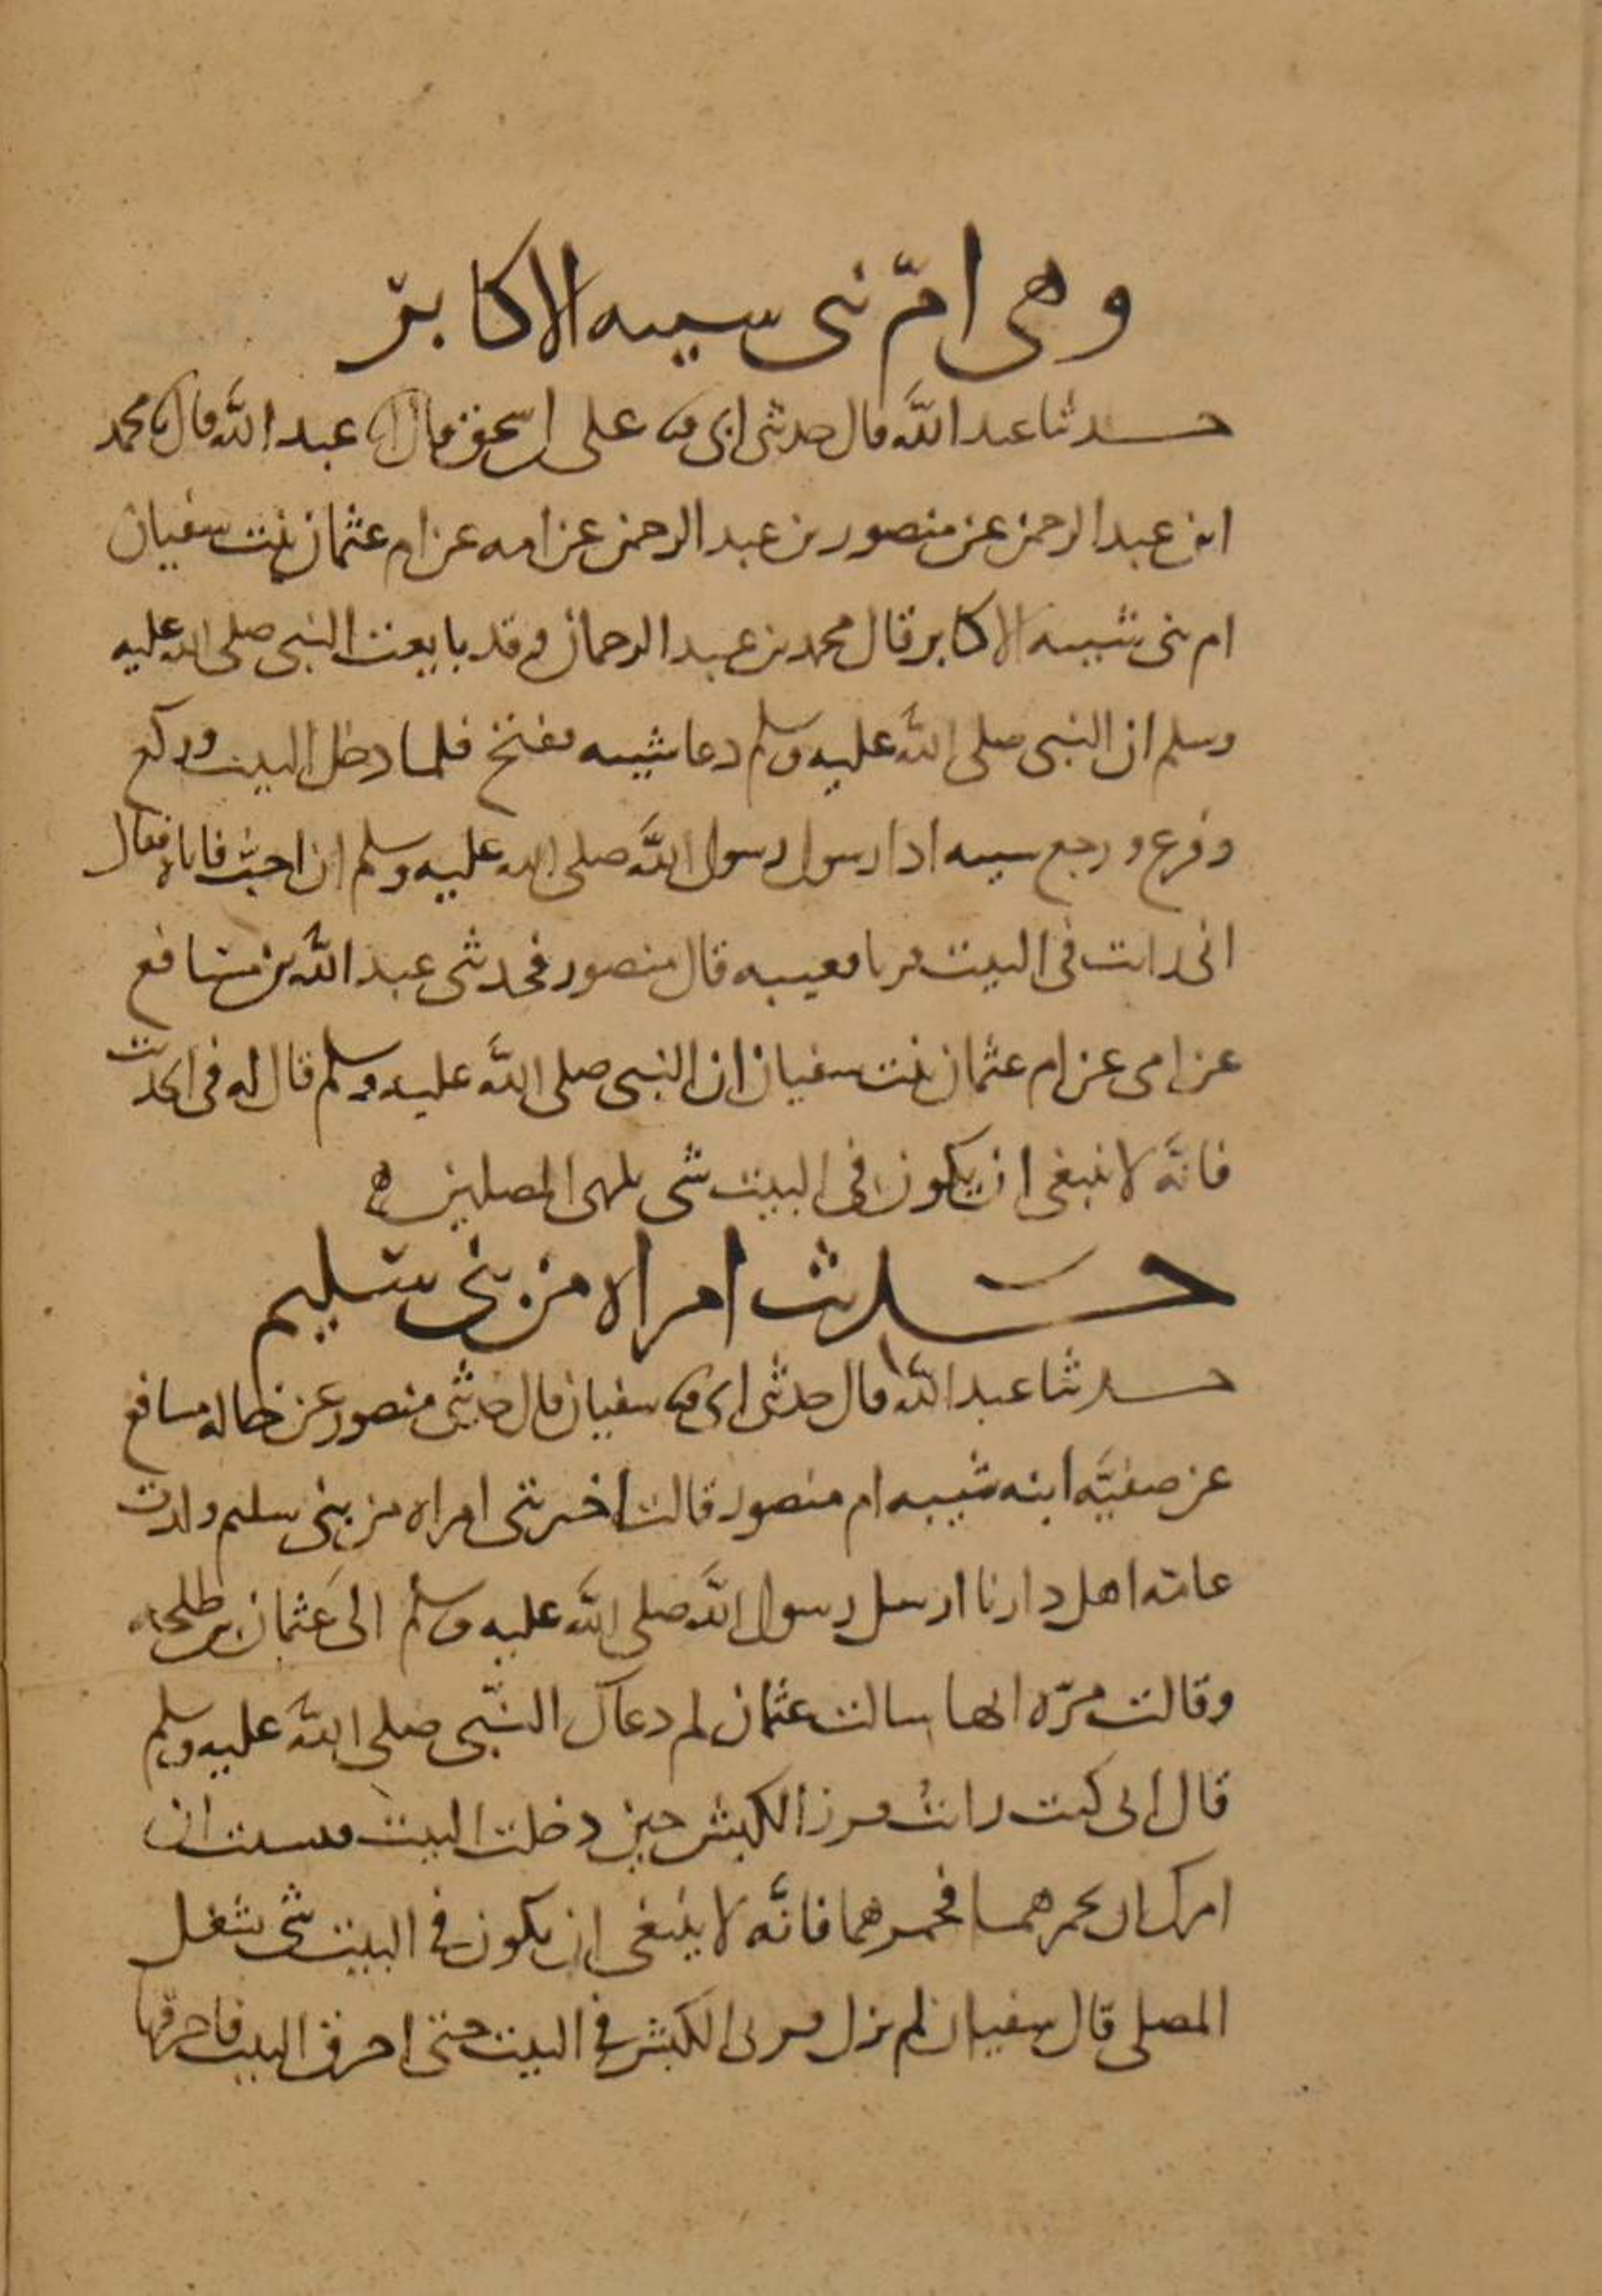 وهى امّ بنى سيبه الاكابر
حدثنا عبد الله قال حدثنى ابى ثنا على بن اسحق قال انا عبد الله قال نا محمد
ابن عبد الرحمن عن منصور بن عبد الرحمن عن امه عن ام عثمان بنت سفيان
ام بنى شيبه الاكابر قال محمد بن عبد الرحمان وقد بايعت النبى صلى الله عليه
وسلم ان النبى صلى الله عليه وسلم دعا شيبه ففتح فلما دخل البيت وركع
وفرغ ورجع سيبه اذا رسول رسول الله صلى الله عليه وسلم ان اجب فاتاه فقال
انى رايت فى البيت قرنا فغيبه قال منصور فحدثنى عبد الله بن مسافع
عن امى عن ام عثمان بنت سفيان ان النبى صلى الله عليه وسلم قال له فى الحديث
فانّه لا ينبغى ان يكون فى البيت شى يلهى المصلين ه
حديث امراه من بنى سليم
حدثنا عبد الله قال حدثنى ابى ثنا سفيان قال حدثنى منصور عن خاله مسافع
عن صفيّه ابنه شيبه ام منصور قالت اخبرتنى امراه من بنى سليم ولدت
عامه اهل دارنا ارسل رسول الله صلى الله عليه وسلم الى عثمان بن طلحه
وقالت مرّه انها سالت عثمان لم دعاك النّبى صلى الله عليه وسلم
قال انى كنت رايت قرنى الكبش حين دخلت البيت فنسيت ان
امرك ان تخمرهما فخمرهما فانّه لا ينبغى ان يكون فى البيت شى يشغل
المصلى قال سفيان لم يزل قرنى الكبش فى البيت حتى احرق البيت فاحترقا